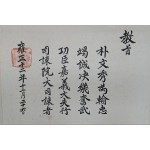 教旨
朴文秀爲輸忠
竭誠決機奮武
功臣嘉義大夫行
司諫院大司諫者
雍正十二年十二月